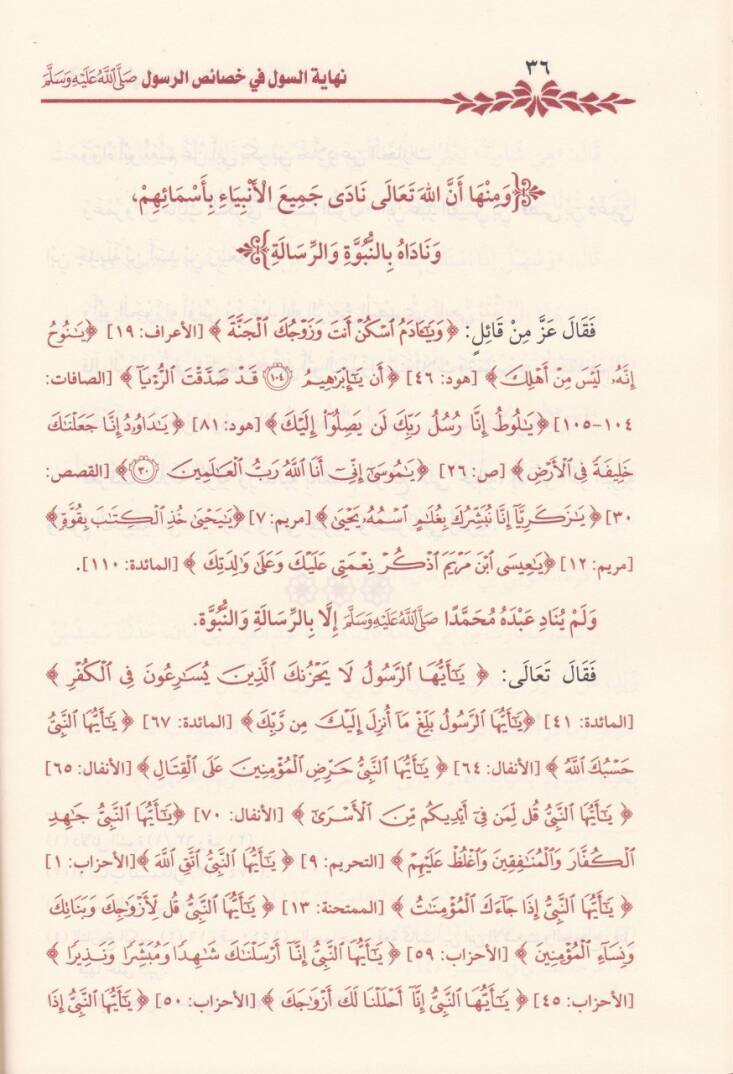 ٣٦
نهاية السول في خصائص الرسول صَلَّى اللَّهُ عَلَيْهِ وَسَلَّمَ
﴿وَمِنْهَا أَنَّ اللهَ تَعَالَى نَادَى جَمِيعَ الْأَنْبِيَاءِ بِأَسْمَائِهِمْ،
وَنَادَاهُ بِالنُّبُوَّةِ وَالرِّسَالَةِ﴾
فَقَالَ عَزَّ مِنْ قَائِلٍ: ﴿ وَيَٰٓـَٔادَمُ ٱسْكُنْ أَنتَ وَزَوْجُكَ ٱلْجَنَّةَ ﴾ [الأعراف: ١٩] ﴿يَٰنُوحُ
إِنَّهُۥ لَيْسَ مِنْ أَهْلِكَ﴾ [هود: ٤٦] ﴿أَن يَٰٓإِبْرَٰهِيمُ ۝١٠٤ قَدْ صَدَّقْتَ ٱلرُّءْيَآ﴾ [الصافات:
١٠٤-١٠٥] ﴿يَٰلُوطُ إِنَّا رُسُلُ رَبِّكَ لَن يَصِلُوٓا۟ إِلَيْكَ﴾ [هود: ٨١] ﴿يَٰدَاوُۥدُ إِنَّا جَعَلْنَٰكَ
خَلِيفَةً فِى ٱلْأَرْضِ﴾ [ص: ٢٦] ﴿يَٰمُوسَىٰٓ إِنِّىٓ أَنَا ٱللَّهُ رَبُّ ٱلْعَٰلَمِينَ ۝٣٠﴾ [القصص:
٣٠] ﴿يَٰزَكَرِيَّآ إِنَّا نُبَشِّرُكَ بِغُلَٰمٍ ٱسْمُهُۥ يَحْيَىٰ﴾ [مريم: ٧] ﴿يَٰيَحْيَىٰ خُذِ ٱلْكِتَٰبَ بِقُوَّةٍ﴾
[مريم: ١٢] ﴿يَٰعِيسَى ٱبْنَ مَرْيَمَ ٱذْكُرْ نِعْمَتِى عَلَيْكَ وَعَلَىٰ وَٰلِدَتِكَ ﴾ [المائدة: ١١٠].
وَلَمْ يُنَادِ عَبْدَهُ مُحَمَّدًا صَلَّى اللَّهُ عَلَيْهِ وَسَلَّمَ إِلَّا بِالرِّسَالَةِ وَالنُّبُوَّةِ.
فَقَالَ تَعَالَى: ﴿ يَٰٓأَيُّهَا ٱلرَّسُولُ لَا يَحْزُنكَ ٱلَّذِينَ يُسَٰرِعُونَ فِى ٱلْكُفْرِ ﴾
[المائدة: ٤١] ﴿يَٰٓأَيُّهَا ٱلرَّسُولُ بَلِّغْ مَآ أُنزِلَ إِلَيْكَ مِن رَّبِّكَ﴾ [المائدة: ٦٧] ﴿ يَٰٓأَيُّهَا ٱلنَّبِىُّ
حَسْبُكَ ٱللَّهُ ﴾ [الأنفال: ٦٤] ﴿ يَٰٓأَيُّهَا ٱلنَّبِىُّ حَرِّضِ ٱلْمُؤْمِنِينَ عَلَى ٱلْقِتَالِ﴾ [الأنفال: ٦٥]
﴿ يَٰٓأَيُّهَا ٱلنَّبِىُّ قُل لِّمَن فِىٓ أَيْدِيكُم مِّنَ ٱلْأَسْرَىٰٓ ﴾ [الأنفال: ٧٠] ﴿يَٰٓأَيُّهَا ٱلنَّبِىُّ جَٰهِدِ
ٱلْكُفَّارَ وَٱلْمُنَٰفِقِينَ وَٱغْلُظْ عَلَيْهِمْ ﴾ [التحريم: ٩] ﴿ يَٰٓأَيُّهَا ٱلنَّبِىُّ ٱتَّقِ ٱللَّهَ ﴾[الأحزاب: ١]
﴿ يَٰٓأَيُّهَا ٱلنَّبِىُّ إِذَا جَآءَكَ ٱلْمُؤْمِنَٰتُ ﴾ [الممتحنة: ١٣] ﴿ يَٰٓأَيُّهَا ٱلنَّبِىُّ قُل لِّأَزْوَٰجِكَ وَبَنَاتِكَ
وَنِسَآءِ ٱلْمُؤْمِنِينَ ﴾ [الأحزاب: ٥٩] ﴿ يَٰٓأَيُّهَا ٱلنَّبِىُّ إِنَّآ أَرْسَلْنَٰكَ شَٰهِدًا وَمُبَشِّرًا وَنَذِيرًا ﴾
[الأحزاب: ٤٥] ﴿ يَٰٓأَيُّهَا ٱلنَّبِىُّ إِنَّآ أَحْلَلْنَا لَكَ أَزْوَٰجَكَ ﴾ [الأحزاب: ٥٠] ﴿ يَٰٓأَيُّهَا ٱلنَّبِىُّ إِذَا